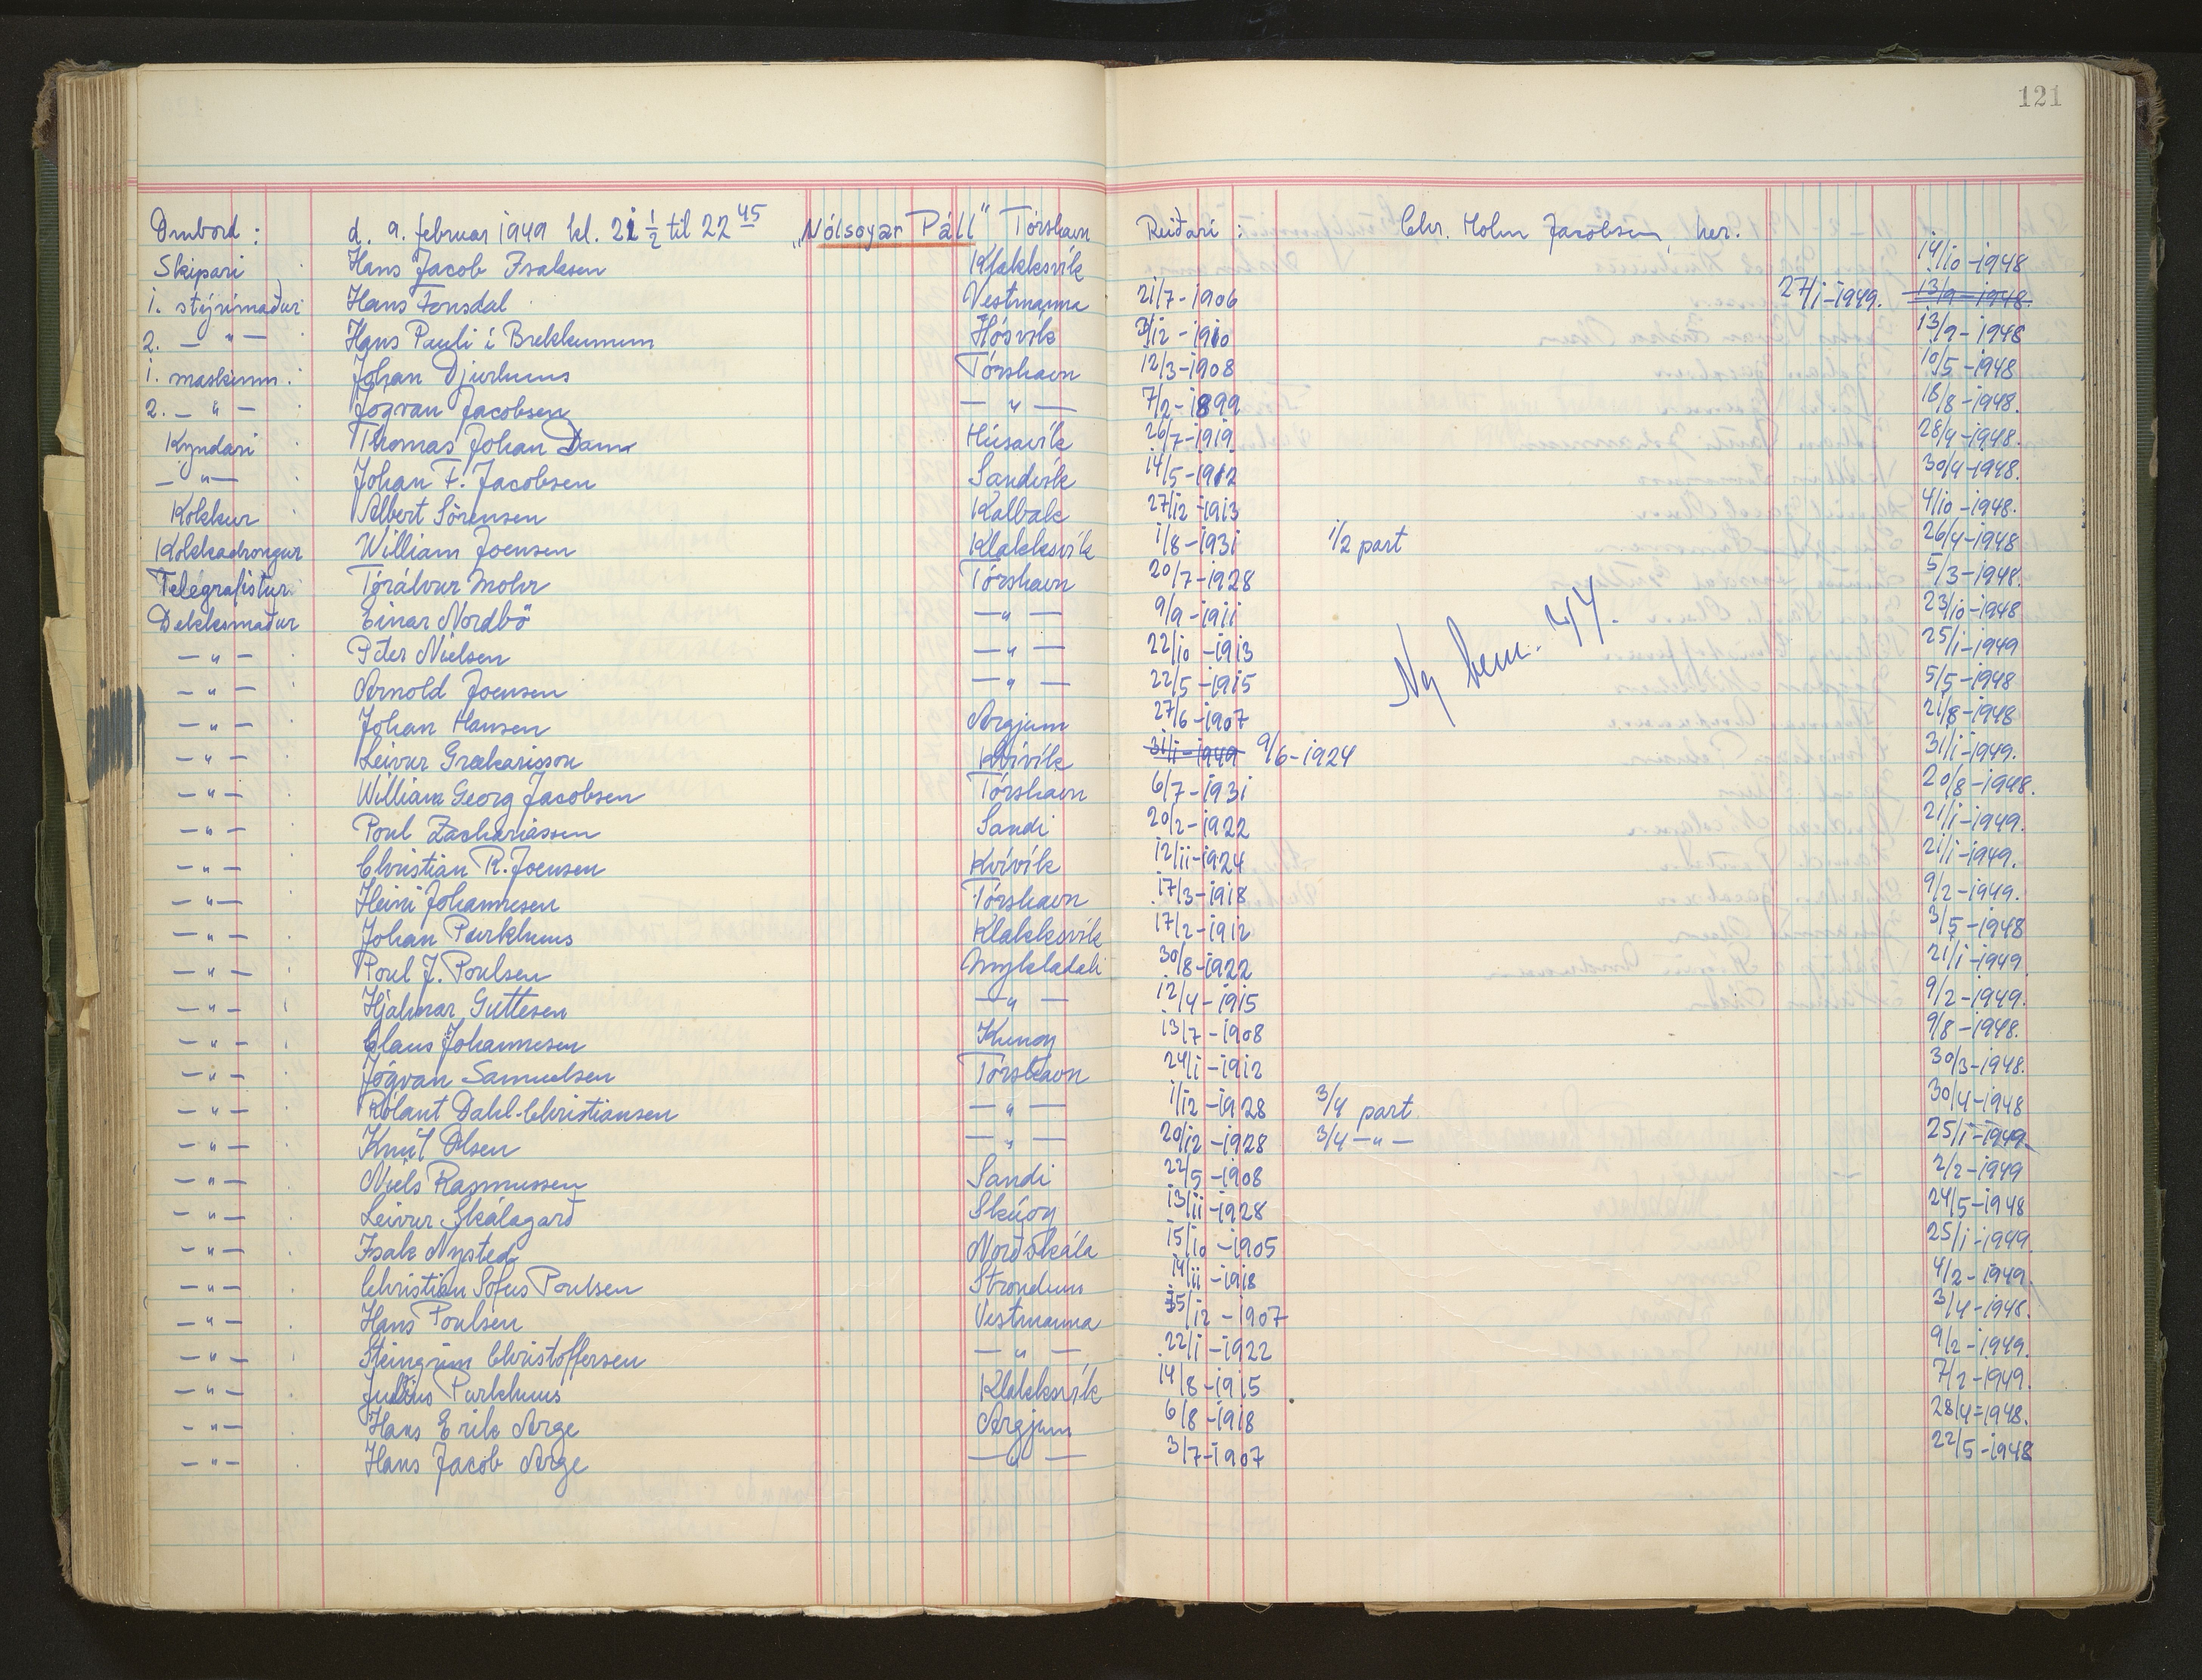 121
Umbord : d. 9. februar 1949 kl. 21 1/2 til 22 45 "Nólsoyar Páll" Tórshavn Reiðari : Chr. Holm Jacobsen, her.
Skipari Hans Jacob Isaksen Klakksvík 14/10-1948
1. stýrimaður Hans Fonsdal Vestmanna 21/7-1906 27/1-1949. 13/9-1948.
2. -"- Hans Pauli í Brekkunum Hósvík 3/12-1910 13/9-1948
1. maskinm. Johan Djurhuus Tórshavn 12/3-1908 10/5-1948
2. -"- Jógvan Jacobsen -"- 7/2-1899 18/8-1948.
Kyndari Thomas Johan Dam Húsavík 26/7-1919 28/4-1948.
-"- Johan F. Jacobsen Sandvík 14/5-1912 30/4-1948.
Kokkur Albert Sörensen Kalbak 27/12-1913 4/10-1948.
Kokkadrongur William Joensen Klakksvík 1/8-1931 1/2 part 26/4-1948
Telegrafistur Tórálvur Mohr Tórshavn 20/7-1928 5/3-1948.
Dekksmaður Einar Nordbö -"- 9/9-1911 23/10-1948
-"- Péter Nielsen -"- 22/10-1913 25/1-1949
-"- Arnold Joensen -"- 22/5-1915 Ny bem. 44. 5/5-1948
-"- Johan Hansen Argjum 27/6-1907 21/8-1948
-"- Leivur Grækarisson Kvívík 31/1-1949 9/6-1924 31/1-1949.
-"- William Georg Jacobsen Tórshavn 6/7-1931 20/8-1948.
-"- Poul Zachariassen Sandi 20/2-1922 21/1-1949.
-"- Christian R. Joensen Kvívík 12/11-1924 21/1-1949.
-"- Heini Johannesen Tórshavn 17/3-1918 9/2-1949.
-"- Johan Purkhuus Klakksvík 17/2-1912 3/5-1948
-"- Poul J. Poulsen Mykladali 30/8-1922 21/1-1949
-"- Hjalmar Guttesen -"- 12/4-1915 9/2-1949.
-"- Claus Johannesen Kunoy 13/7-1908 9/8-1948.
-"- Jógvan Samuelsen Tórshavn 24/1-1912 30/3-1948.
-"- Rólant Dahl-Christiansen -"- 1/12-1928 3/4 part 30/4-1948
-"- Knút Olsen -"- 20/12-1928 3/4 -"- 25/1-1949
-"- Niels Rasmussen Sandi 22/5-1908 2/2-1949
-"- Leivur Skálagarð Skúoy 13/11-1928 24/5-1948
-"- Isak Nysted Norðskála 15/10-1905 25/1-1949
-"- Christian Sofus Poulsen Strondum 14/11-1918 4/2-1949
-"- Hans Poulsen Vestmanna 25/12-1907 3/4-1948.
-"- Steingrím Christoffersen -"- 22/1-1922 9/2-1949.
-"- Julius Purkhuus Klakksvík 14/8-1915 7/2-1949.
-"- Hans Erik Arge Argjum 6/8-1918 28/4-1948.
-"- Hans Jacob Arge -"- 3/7-1907 22/5-1948